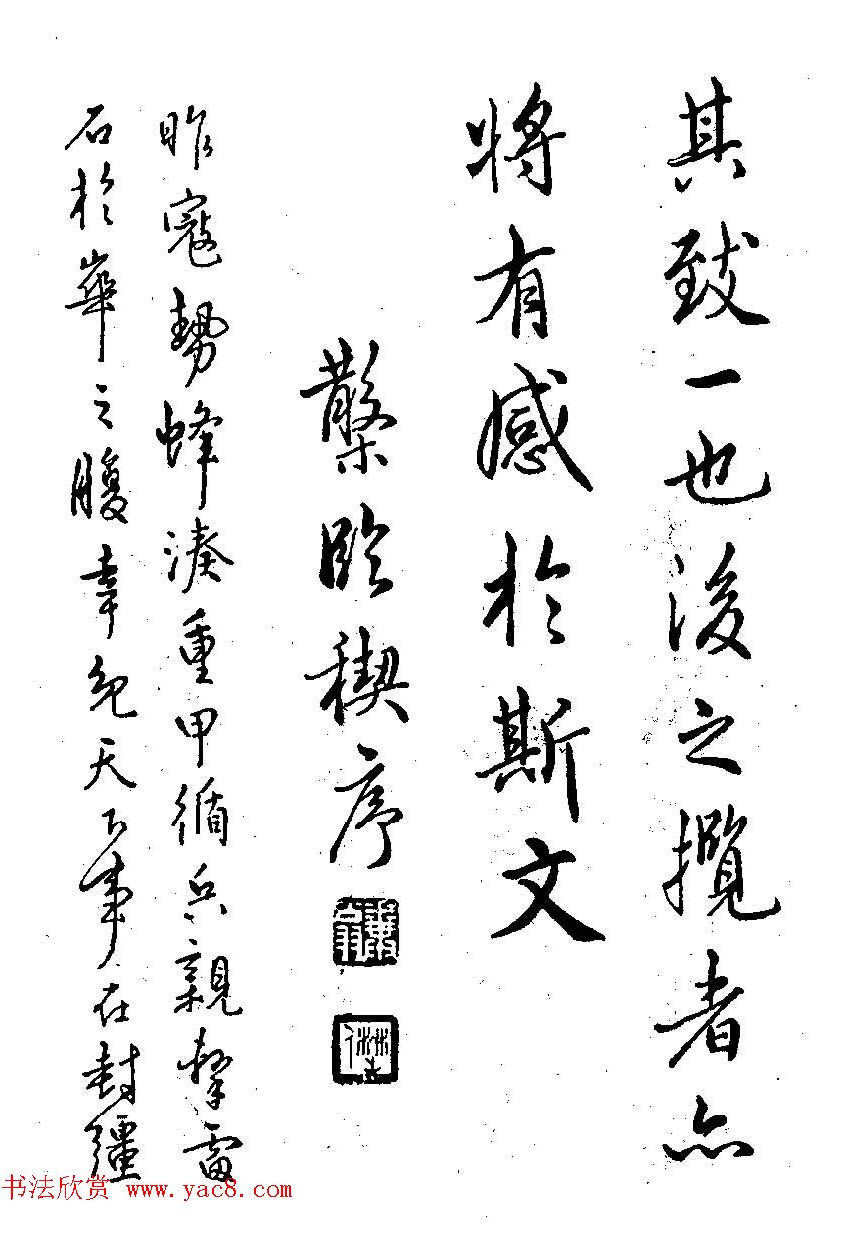 其致一也後之攬者亦
將有感於斯文
槃臨禊序
昨寇勢蜂湊重甲循兵親擊雷
石於華之腹幸絕天下事在封疆
书法欣赏 www.yac8.com